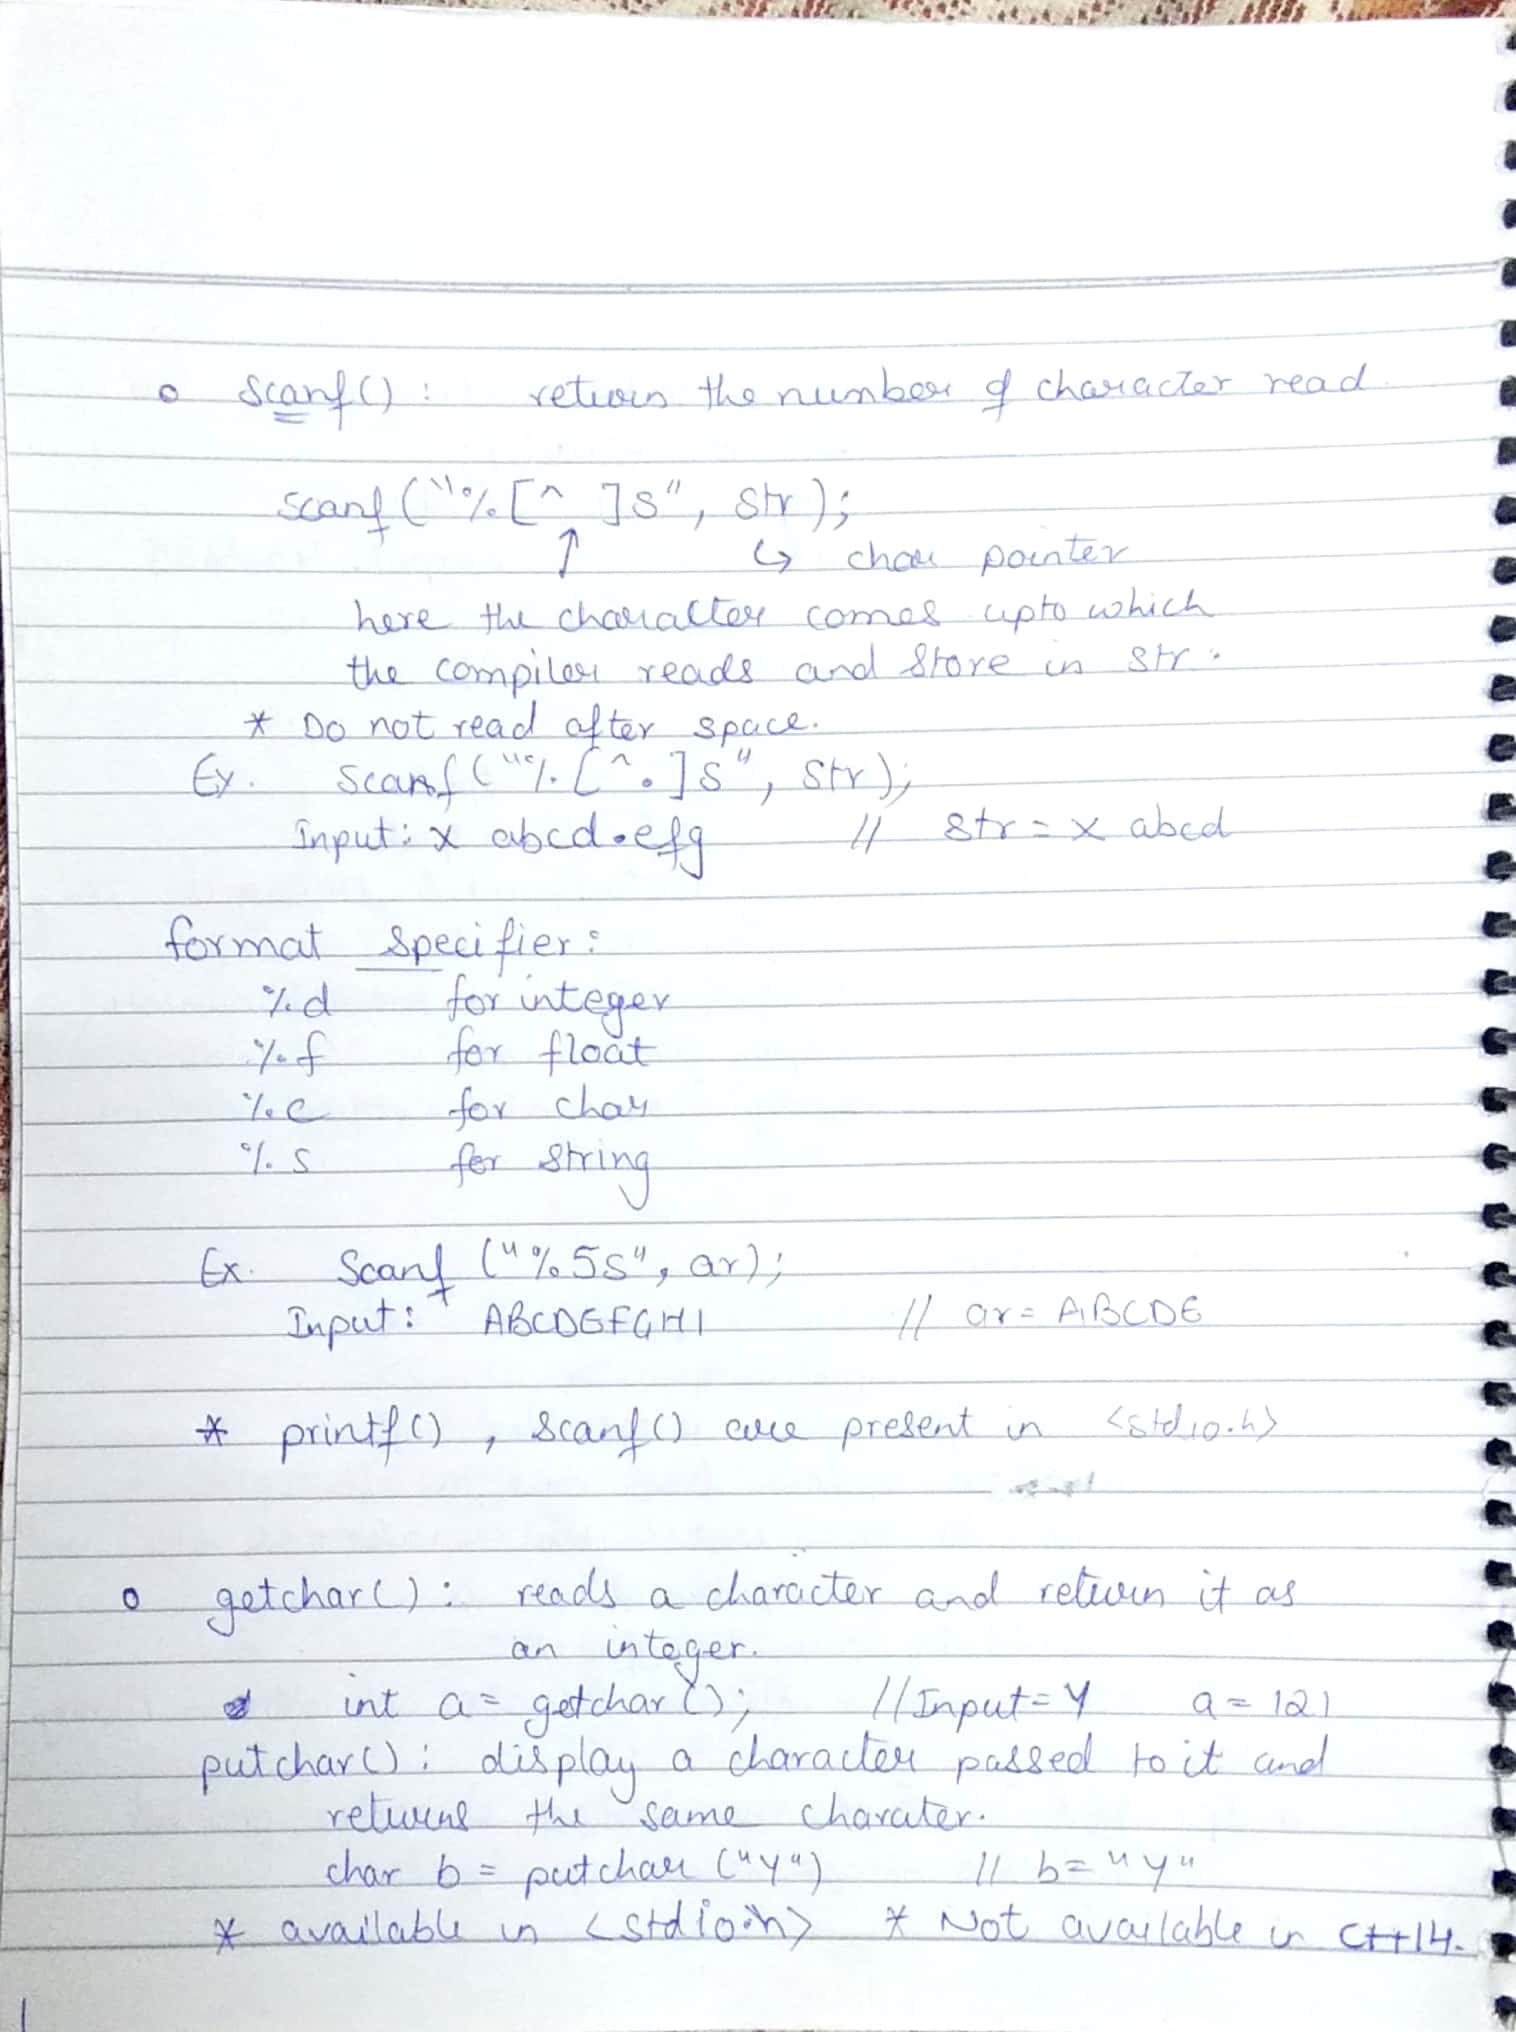 o scanf() : return the number of character read
scanf ("%[^ ]s", str);
↑ ↳ char pointer
here the character comes upto which
the compiler reads and store in str.
* Do not read after space.
Ex. scanf ("%[^.]s", str);
Input: x abcd.efg // str = x abcd
format specifier:
%d for integer
%f for float
%c for char
%s for string
Ex. Scanf ("%5s", ar);
Input: ABCDEFGHI // ar = ABCDE
* printf() , scanf() are present in <stdio.h>
o getchar() : reads a character and return it as
an integer.
int a = getchar(); // Input = y a = 121
putchar() : display a character passed to it and
returns the same charater.
char b = putchar ("y") // b = "y"
* available in <stdio.h> * Not available in C++14.